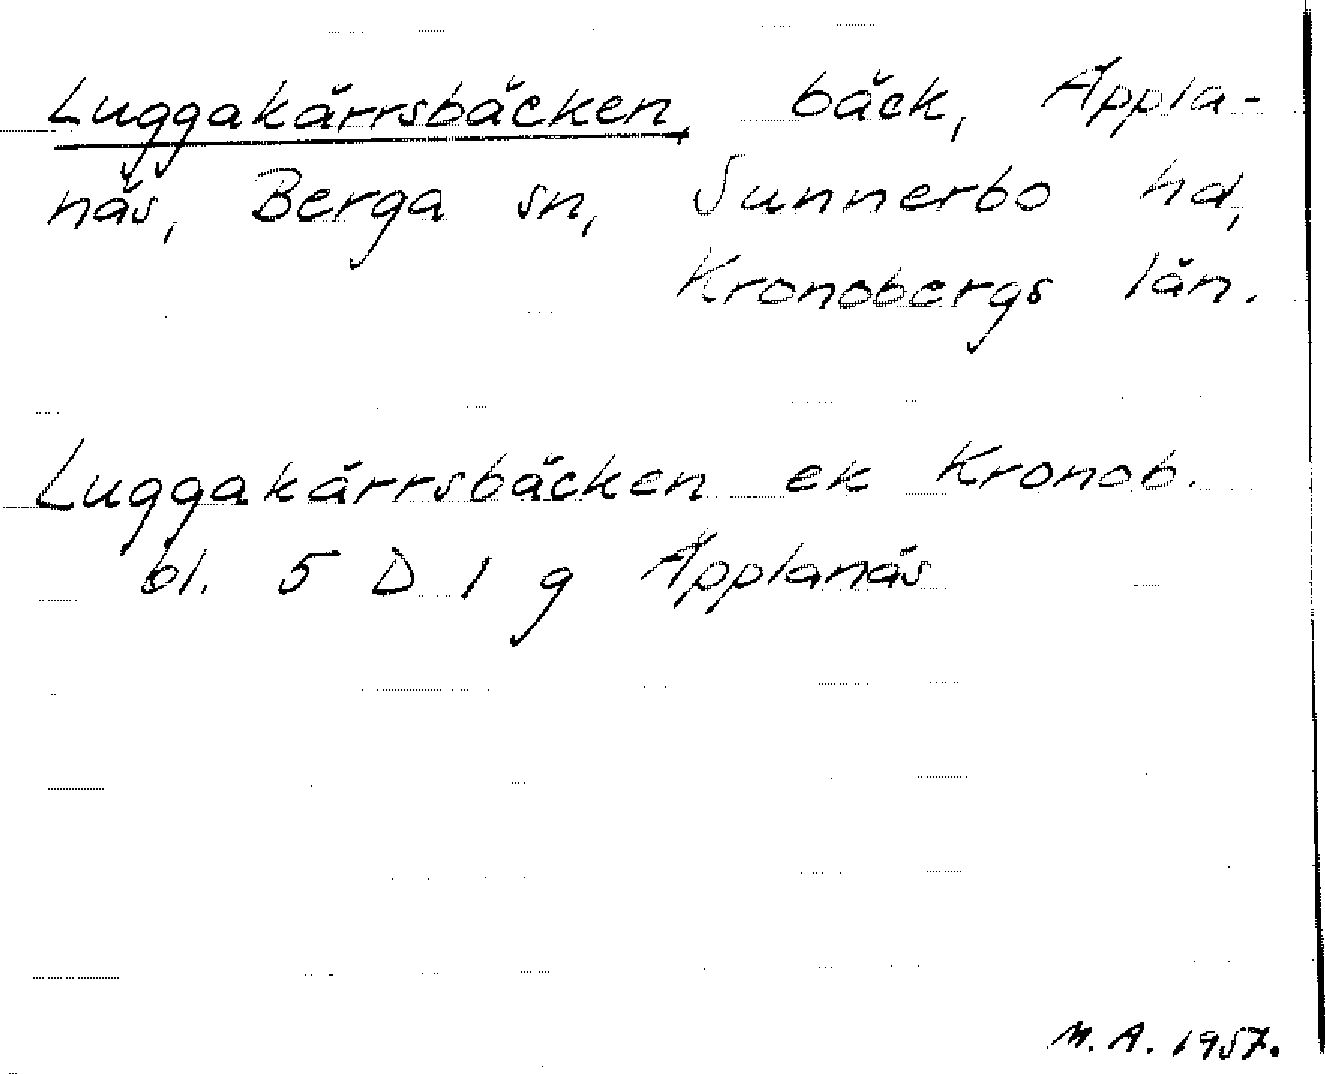 Luggakärrsbäcken, bäck, Äppla-
näs, Berga sn, Sunnerbo hd,
Kronobergs län.
Luggakärrsbäcken ek Kronob.
bl. 5 D 1 g Äpplanäs
M. A. 1957.